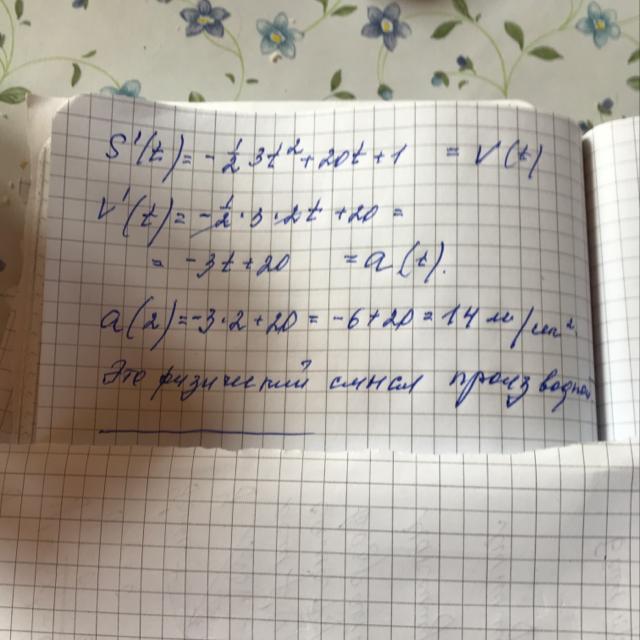 S'(t)=-½3t²+20t+1 = V(t)
V'(t)=-½·3·2t+20=
=-3t+20 =a(t).
a(2)=-3·2+20=-6+20=14 м/с²
Это физический смысл производной